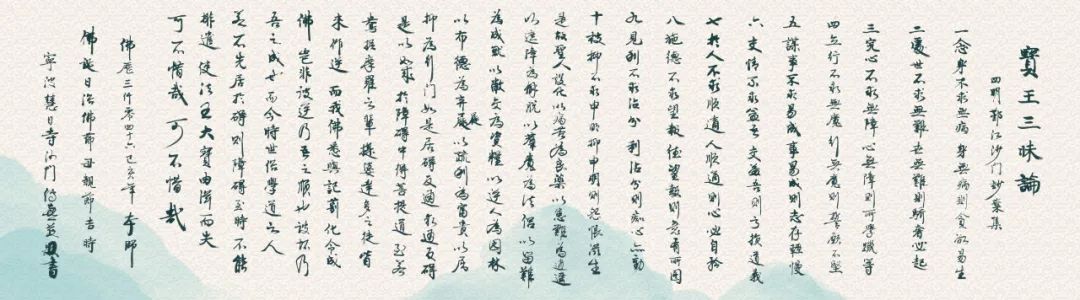 寶王三昧論
四明鄞江沙門妙葉集
一念身不求無病身無病則貪欲易生
二處世不求無難世無難則驕奢必起
三究心不求無障心無障則所學躐等
四立行不求無魔行無魔則誓願不堅
五謀事不求易成事易成則志存輕慢
六交情不求益吾交益吾則虧損道義
七於人不求順適人順適則心必自矜
八施德不求望報德望報則意有所圖
九見利不求沾分利沾分則癡心亦動
十被抑不求申明抑申明則怨恨滋生
是故聖人設化以病苦為良藥以患難為逍遙
以遮障為解脫以羣魔為法侶以留難
為成就以敝交為資糧以逆人為園林
以布德為棄屣以疏利為富貴以屈
抑為行門如是居礙反通求通反礙
是以如來於障礙中得菩提道至若
鴦掘摩羅之輩提婆達多之徒皆
來作逆而我佛悉與記莂化令成
佛豈非彼逆乃吾之順也彼壞乃
吾之成也而今時世俗學道之人
若不先居於礙則障礙至時不能
排遣使法王大寶由茲而失
可不惜哉可不惜哉
佛曆三仟零四十六己亥年 本師
佛誕日浴佛節母親節吉時
寧波慧日寺沙門傳 書